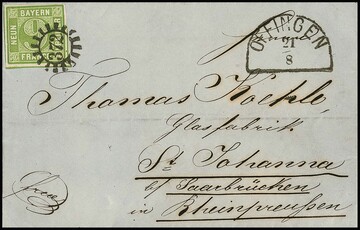 BAYERN
NEUN
FRANCO
OFFINGEN
21
8
Thomas Koehle
Glasfabrik
St Johanna
b/ Saarbrücken
in Rheinpreußen